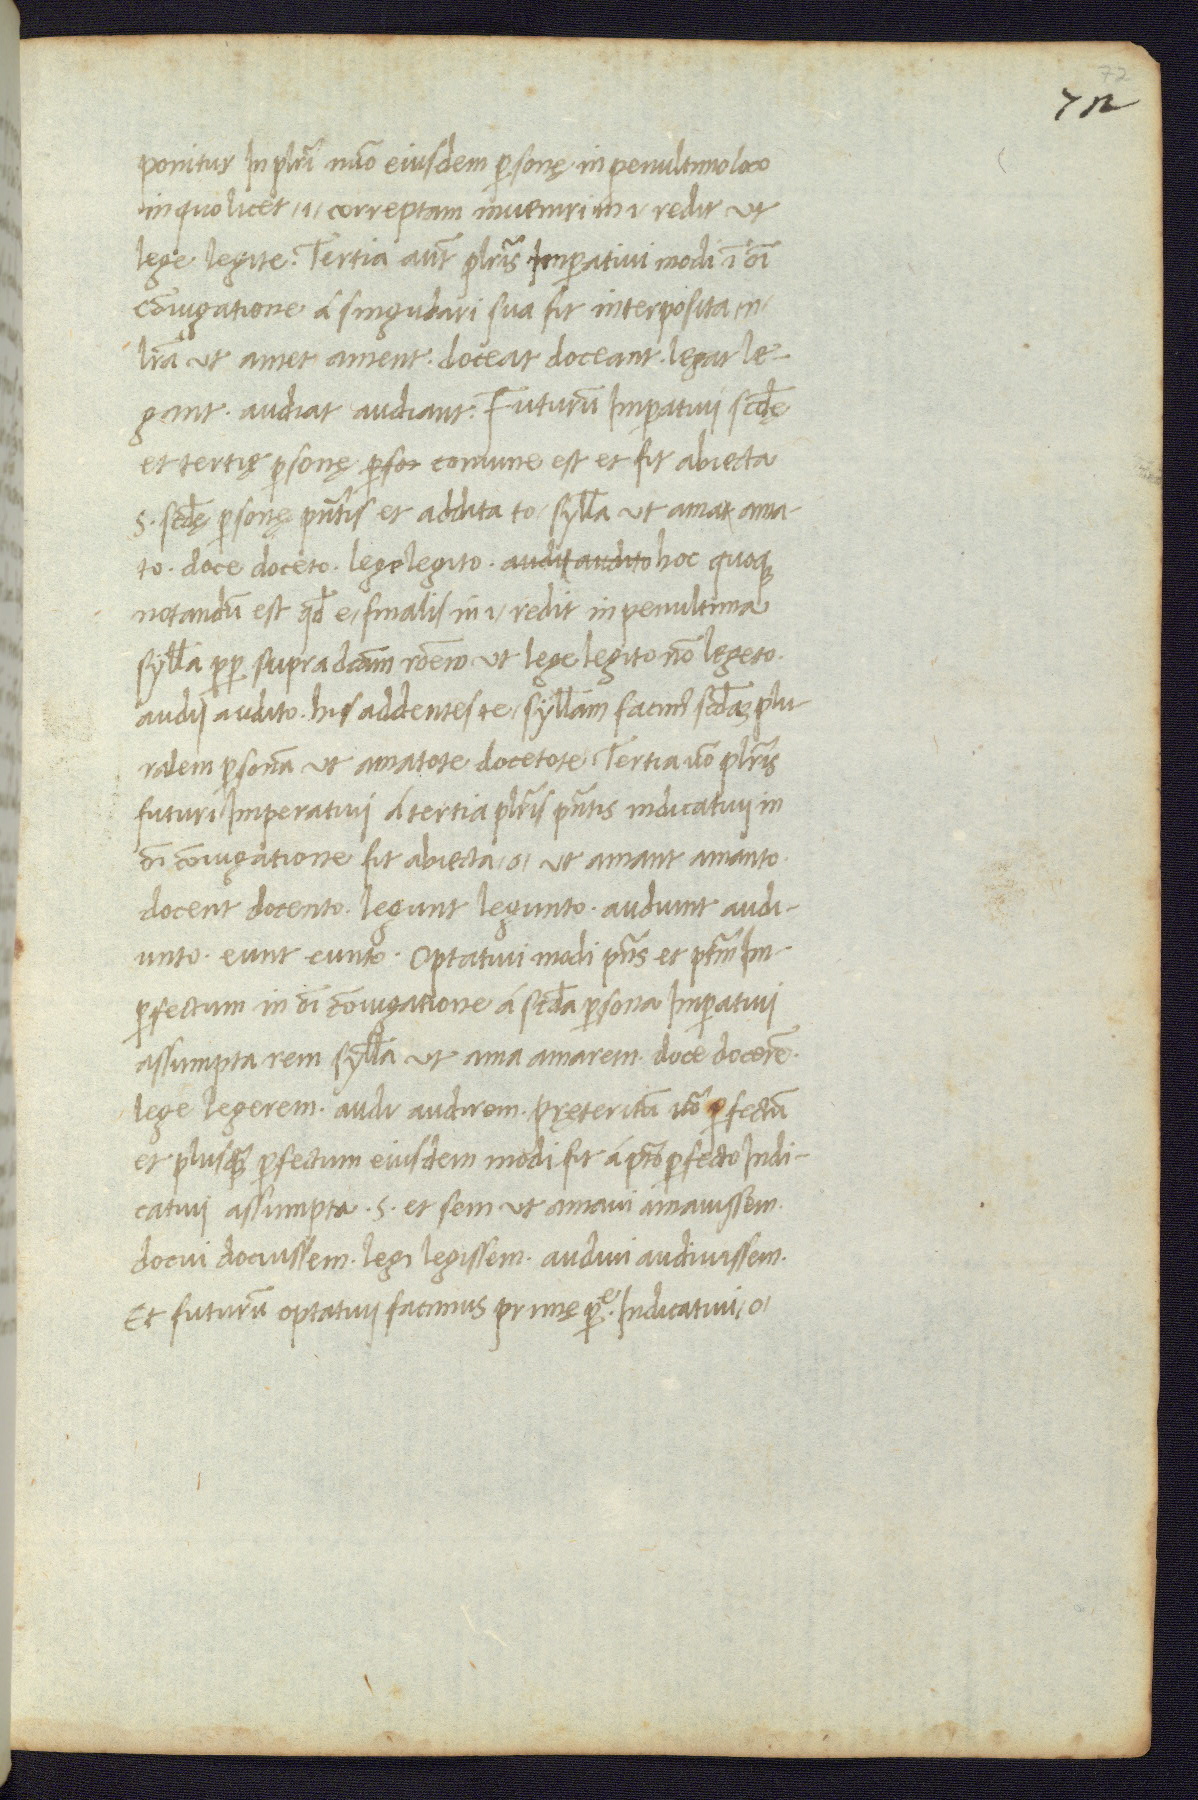 72
72
ponitur In plr̄i nūo eiusdem p̱sonę. in penultimo loco
in quo licet /i/ correptam inueniri in i/ redit ut
lege legite. Tertia aūt plr̄is Imp̱atiui modi ī oī
cōiugatione á singulari sua fit interposita /n/
lrā ut amet ament. doceat doceant. legat le-
gant. audiat audiant. Futurū Imp̱atiuj scdę
et tertię p̱sonę comune est et fit abiecta
s. scdę p̱sonę pn̄tis et addita to/ sylla ut ama ama-
to. doce doceto. lege legito. audi audito hoc quoq
notandū est qd e/ finalis in i/ redit in penultima
sylla pp̱ supra dcām rōem ut lege legito nō legeto.
audi audito. his addentes te/ syllam facim9 scdaȝ plu
ralem p̱sonā ut amatote docetote. Tertia uō plr̄is
futuri Imperatiuj á tertia plr̄is pn̄tis indicatiuj in
oī cōiugatione fit abiecta /o/ ut amant amanto.
docent docento. legunt legunto. audiunt audi-
unto. eunt eunto. Optatiui modi pn̄s et ptm̄ Im-
p̱fectum in oī cōiugatione á scda p̱sona Imp̱atiuj
assumpta rem sylla ut ama amarem. doce docerē.
lege legerem. audi audirem. pręteritū uō p̱fectū
et plusq̱ p̱fectum eiusdem modi fit á ptō p̱fecto Indi-
catiuj assumpta .s. et sem ut amaui amauissem.
docui docuissem. legi legissem. audiui audiuissem.
Et futurū optatiuj facimus primę p̱e. Indicatiui /o/